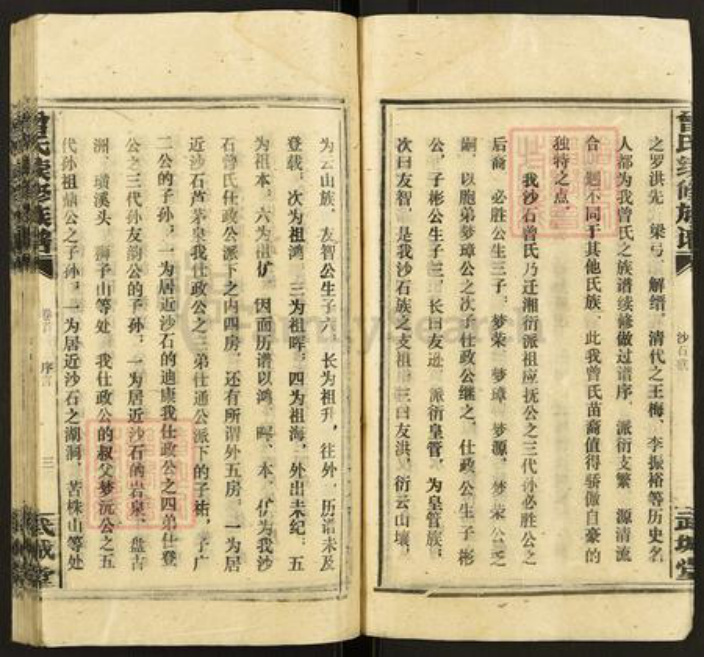 曾氏续修族谱
之罗洪先、梁弓、解缙，清代之王梅、李振裕等历史名
人都为我曾氏之族谱续修做过谱序，派衍支繁，源清流
合，迥不同于其他氏族，此我曾氏苗裔值得骄傲自豪的
独特之点。
我沙石曾氏乃迁湘衍派祖应抚公之三代孙必胜公之
后裔，必胜公生三子：梦荣、梦璋、梦源，梦荣公乏
嗣，以胞弟梦璋公之次子仕政公继之，仕政公生子彬
公，子彬公生子三：长曰友逊，派衍皇管，为皇管族；
次曰友智，是我沙石族之支祖；三曰友洪，衍云山壤，
沙石族
武城堂
为云山族，友智公生子六，长为祖升，往外，历谱未及
登载，次为祖鸿，三为祖晖，四为祖海，外出未纪；五
为祖本，六为祖伊，因而历谱以鸿、晖、本、伊为我沙
石曾氏仕政公派下之内四房，还有所谓外五房，一为居
近沙石芦茅泉我仕政公之三弟仕通公派下的子祐、子广
二公的子孙，一为居近沙石的迪康我仕政公之四弟仕登
公之三代孙友韵公的子孙，一为居近沙石的岩泉、盘古
洲、璜溪头、狮子山等处，我仕政公的叔父梦沅公之五
代孙祖鼎公之子孙，一为居近沙石之湖洞、苦株山等处
曾氏续修族谱
卷首
序言
三
武城堂